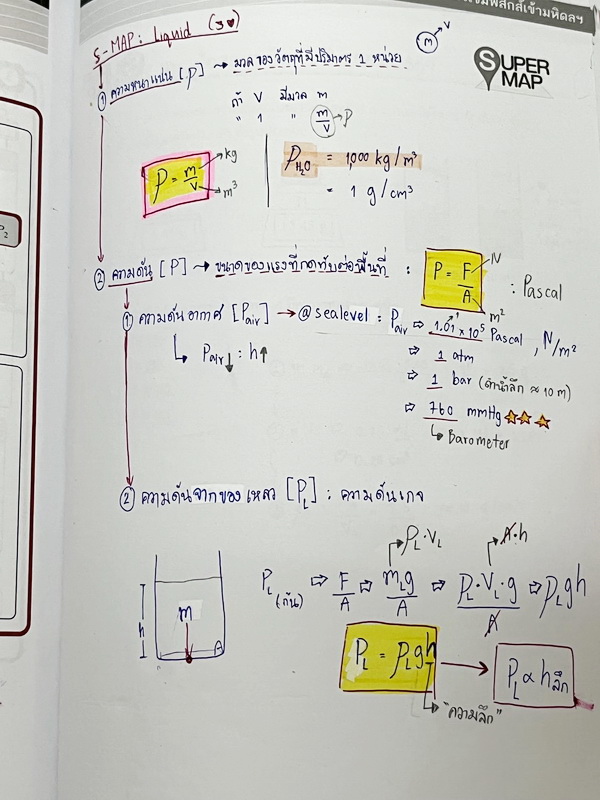 ฟิสิกส์เข้ามหิดลฯ
S-MAP: Liquid
SUPER MAP
m V
① ความหนาแน่น [ρ] → มวลของวัตถุที่มีปริมาตร 1 หน่วย
ถ้า V มีมวล m
" 1 " m/V → ρ
ρ = m/V → kg → m³
ρH₂O = 1,000 kg/m³
= 1 g/cm³
② ความดัน [P] → ขนาดของแรงที่กดทับต่อพื้นที่ : P = F/A N m² : Pascal
① ความดันอากาศ [Pair] → @sealevel : Pair ⇨ 1.01 × 10⁵ Pascal, N/m²
↳ Pair↓ : h↑
⇨ 1 atm
⇨ 1 bar (ดำน้ำลึก ≈ 10 m)
⇨ 760 mmHg
↳ Barometer
② ความดันจากของเหลว [PL] : ความดันเกจ
ρL·VL A·h
PL (ก้น) ⇨ F/A ⇨ mLg/A ⇨ ρL·VL·g/A ⇨ ρLgh
h m A
PL = ρLgh → PL ∝ hลึก
"ความลึก"